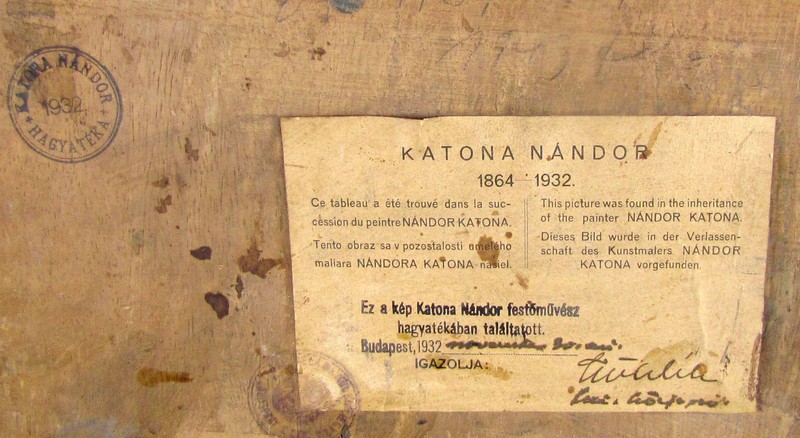 KATONA NÁNDOR
1932
HAGYATÉKA
KATONA NÁNDOR
1864 1932.
Ce tableau a été trouvé dans la suc-
cession du peintre NÁNDOR KATONA.
Tento obraz sa v pozostalosti umelého
maliara NÁNDORA KATONA našiel.
This picture was found in the inheritance
of the painter NÁNDOR KATONA.
Dieses Bild wurde in der Verlassen-
schaft des Kunstmalers NÁNDOR
KATONA vorgefunden.
Ez a kép Katona Nándor festőművész
hagyatékában találtatott.
Budapest, 1932 november
IGAZOLJA: